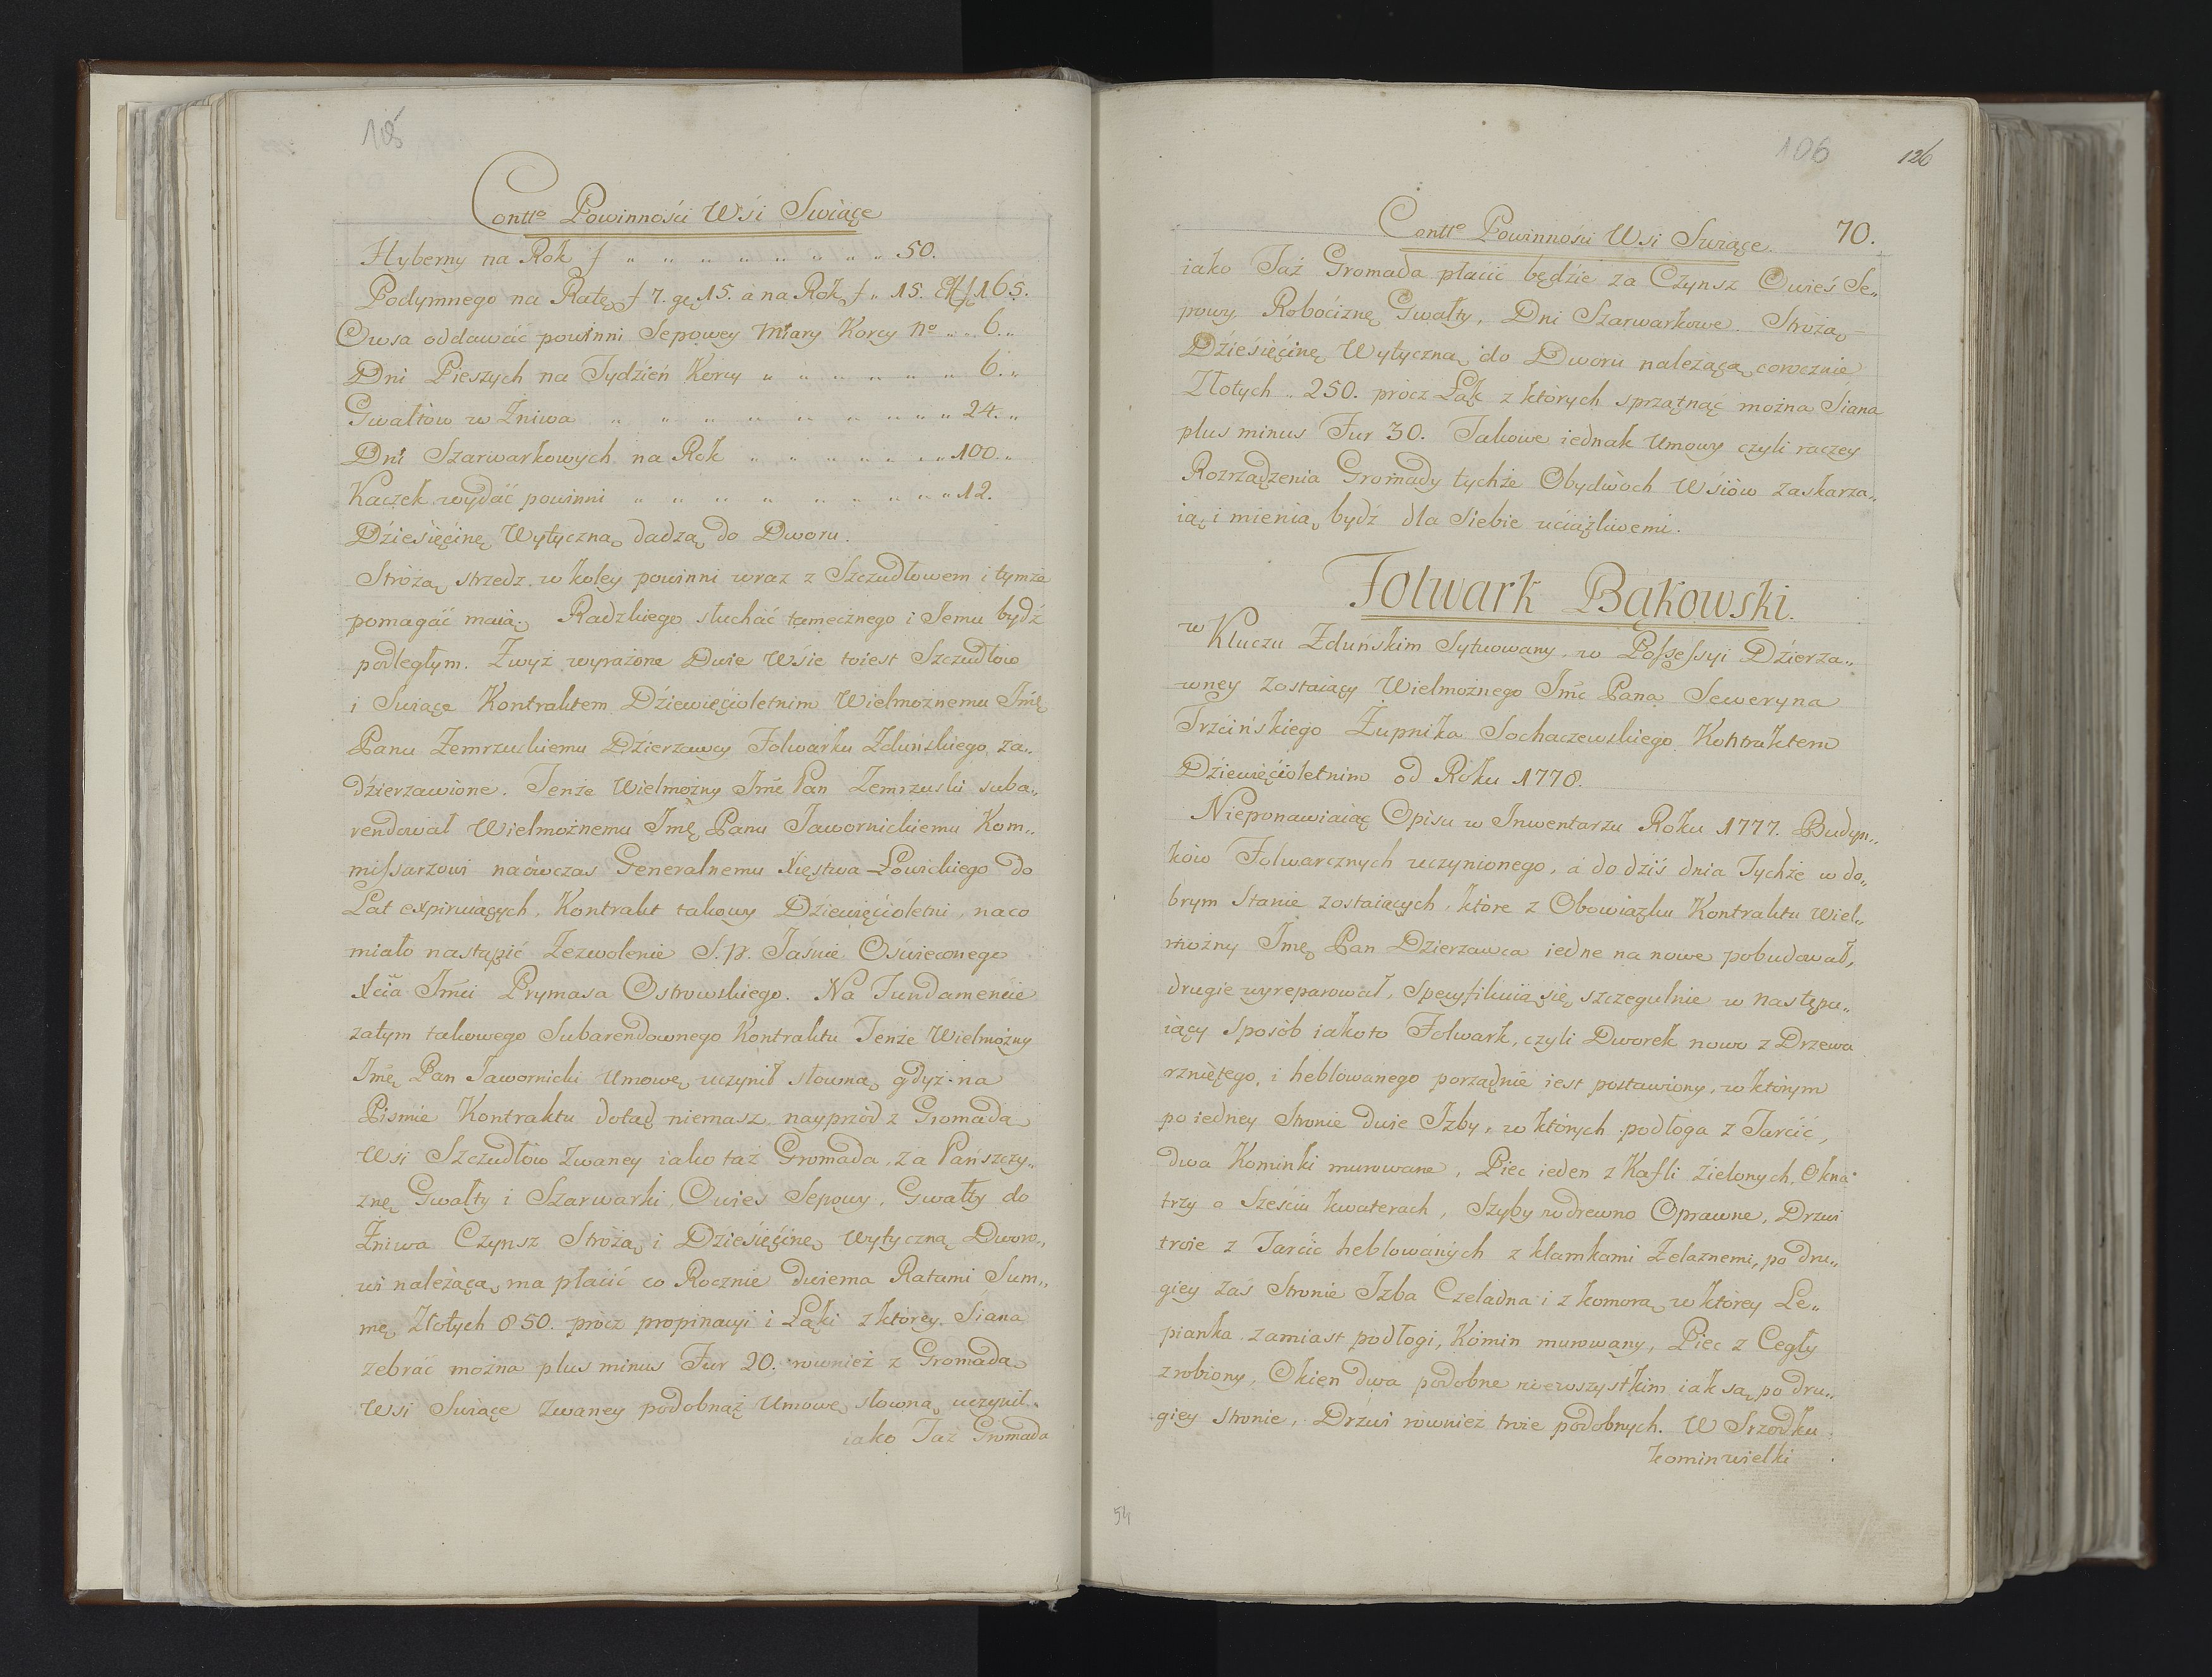 105
Contto Powinności Wśi Swiące
Hyberny na Rok f " " " " " " " " " 50.
Podymnego na Ratę f 7. gę 15. á na Rok f " 15. 165.
Owsa oddawáć powinni Sepowey Miary Korcy No " " 6 "
Dni Pieszych na Tydźień Korcy " " " " " " " " 6. "
Gwałtow w Żniwa " " " " " " " " " " 24. "
Dni Szarwarkowych na Rok " " " " " " " 100. "
Kaczek wydáć powinni " " " " " " " " " 12.
Dźiesięćinę Wytyczną dadzą do Dworu.
Stróżą strzedz w koley powinni wraz z Szczudłowem i tymże
pomagáć maią. Radzkiego słuchać tamecznego i Jemu bydź
podległym. Zwyż wyrażone Dwie Wśie toiest Szczudłów
i Swiące Kontraktem Dźiewięćioletnim Wielmożnemu Jmć
Panu Zemrzuskiemu Dźierzawcy Folwarku Zduńskiego za„
dźierzawione. Tenże Wielmożny Jmć Pan Zemrzuski suba„
rendował Wielmożnemu Jmć Panu Jawornickiemu Kom„
missarzowi naówczas Generalnemu Xięstwa Łowickiego do
Lat expiruiących, Kontrakt takowy Dźiewięćioletni, naco
miało nastąpić Zezwolenie S. p. Jaśnie Oświeconego
Xcia Jmći Prymasa Ostrowskiego. Na Fundamenćie
zatym takowego Subarendownego Kontraktu Tenże Wielmożny
Jmć Pan Jawornicki Umowę uczynił słowną gdyż na
Piśmie Kontraktu dotąd niemasz, nayprzód z Gromadą
Wsi Szczudłów zwaney iako taż Gromada, za Pańszczy„
znę Gwałty i Szarwarki, Owies Sepowy, Gwałty do
Żniwa Czynsz Stróżą i Dźiesięćinę Wytyczną Dworo„
wi należącą ma płacić co Rocznie dwiema Ratami Sum„
mę Złotych 850. prócz propinacyi i Łąki z którey Siana
zebráć można plus minus Fur 20. rownież z Gromadą
Wsi Swiące zwaney podobnąż Umowę słowną uczynił.
iako Taż Gromada
106
126
Contto Powinnośći Wsi Swiące. 70.
iako Taż Gromada płaćić będźie za Czynsz Owieś Se„
powy Roboćiznę, Gwałty, Dni Szarwarkowe. Stróżą
Dźieśięćinę Wytyczną do Dworu należącą corocznie
Złotych " 250. prócz Łąk z których sprzątnąć można Siana
plus minus Fur 30. Takowe iednak Umowy czyli raczey
Rozrządzenia Gromady tychże Obydwóch Wśiów zaskarża„
ią, i mienią bydź dla Siebie uciążliwemi.
Folwark Bąkowski.
w Kluczu Zduńskim Sytuowany, w Possessyi Dźierza„
wney zostaiący Wielmożnego Jmć Pana Seweryna
Trzćińskiego Żupnika Sochaczewskiego Kontraktem
Dźiewięćioletnim od Roku 1778.
Nieponawiaiąc Opisu w Inwentarzu Roku 1777. Budyn„
ków Folwarcznych uczynionego, á do dźiś dnia Tychże w do„
brym Stanie zostaiących, które z Obowiązku Kontraktu Wiel„
możny Jmć Pan Dzierzawca iedne na nowe pobudował,
drugie wyreparował, Specyfikuią się szczegulnie w następu„
iący Sposób iakoto Folwark, czyli Dworek nowo z Drzewa
rzniętego, i heblowanego porządnie iest postawiony, w którym
po iedney Stronie dwie Izby, w których podłoga z Tarćić,
dwa Kominki murowane, Piec ieden z Kafli Źielonych, Okna
trzy o Sześćiu kwaterach, Szyby w drewno Oprawne, Drzwi
troie z Tarćic heblowanych z klamkami Żelaznemi, po dru„
giey zaś Stronie Izba Czeladna i z komorą w ktorey Le„
pianka zamiast podłogi, Komin murowany, Piec z Cegły
zrobiony, Okien dwa podobne wewszystkim iak są po dru„
giey stronie, Drzwi rownież troie podobnych. W Srzodku
komin wielki
54